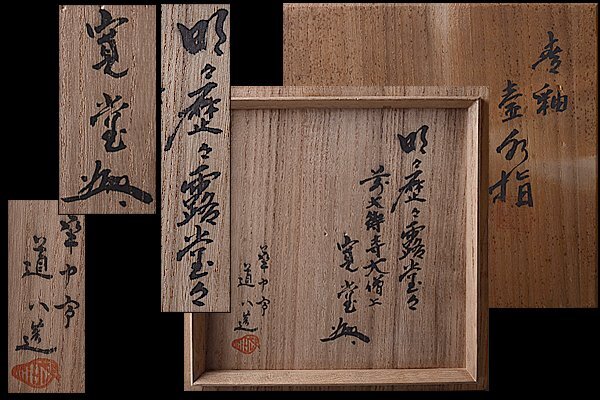 青釉
壷水指
明々歴々露堂々
前大徳寺大僧
寛堂
華中亭
道八造
明々歴々露堂々
寛堂
華中亭
道八造